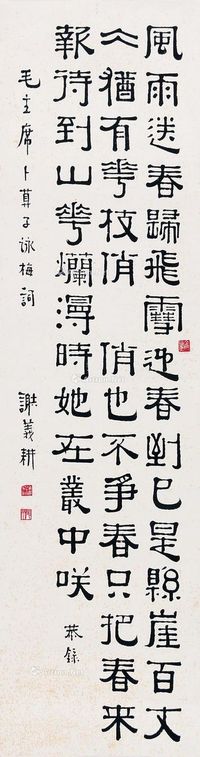 風雨送春歸飛雪迎春到已是縣崖百丈
仌猶有華枝俏俏也不爭春只把春来
報待到山華爛漫時她在叢中咲 恭錄
毛主席卜算子詠梅詞 謝義耕